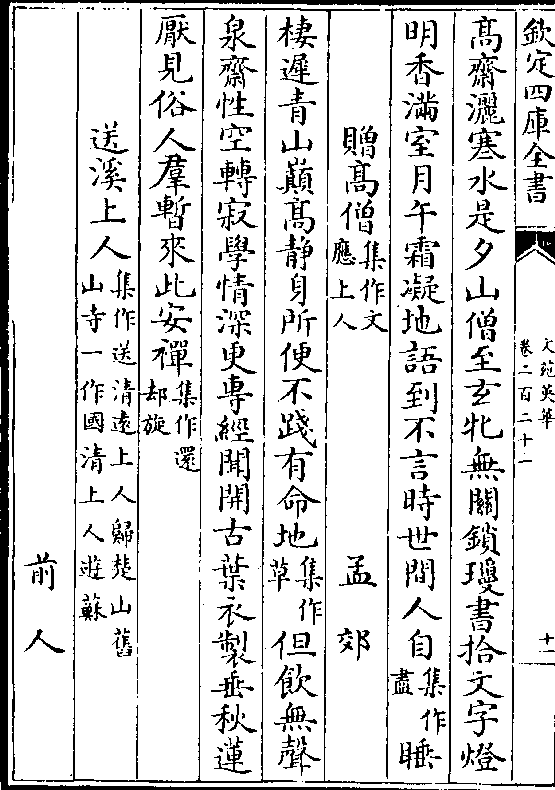 欽定四庫全書
文苑英華
卷二百二十一
十一
髙齋灑寒水是夕山僧至玄牝無關鎖瓊書拾文字燈
明香滿室月午霜凝地語到不言時世間人自集作盡睡
贈髙僧集作文應上人 孟郊
棲遲青山巔髙静身所便不踐有命地集作草但飲無聲
泉齋性空轉寂學情深更專經聞開古葉衣製垂秋蓮
厭見俗人羣暫來此安禪集作還却旋
送溪上人集作送清遠上人歸楚山舊山寺一作國清上人遊蘇
前人